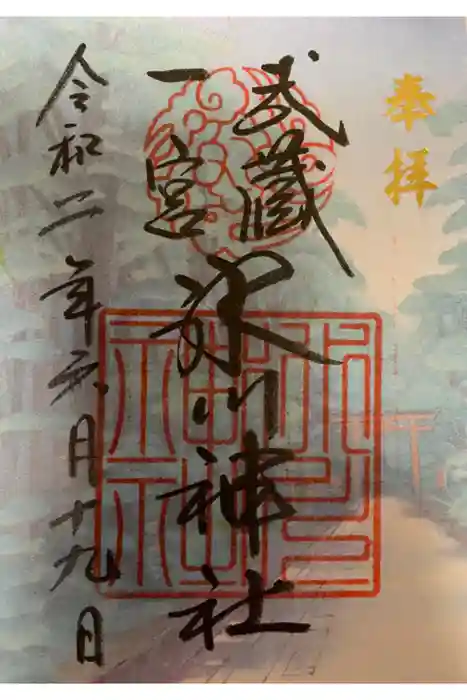 奉拝
武蔵
一宮
氷川神社
氷川
神社
令和二年六月十九日